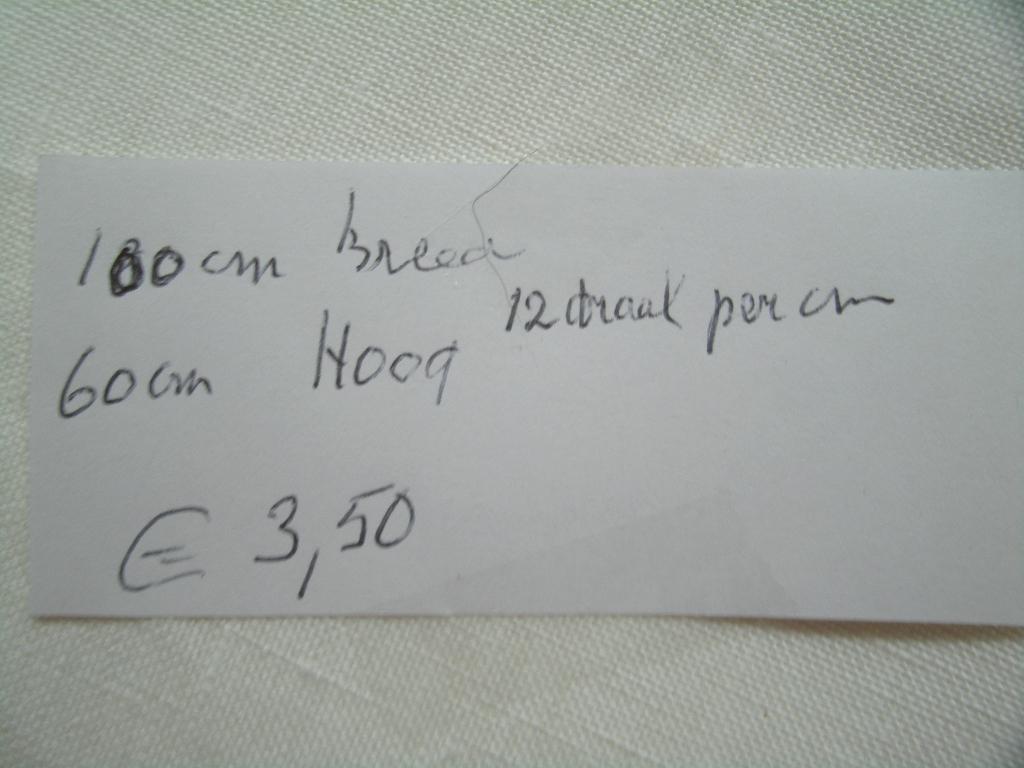 100cm Breed
12 draad per cm
60cm Hoog
€ 3,50